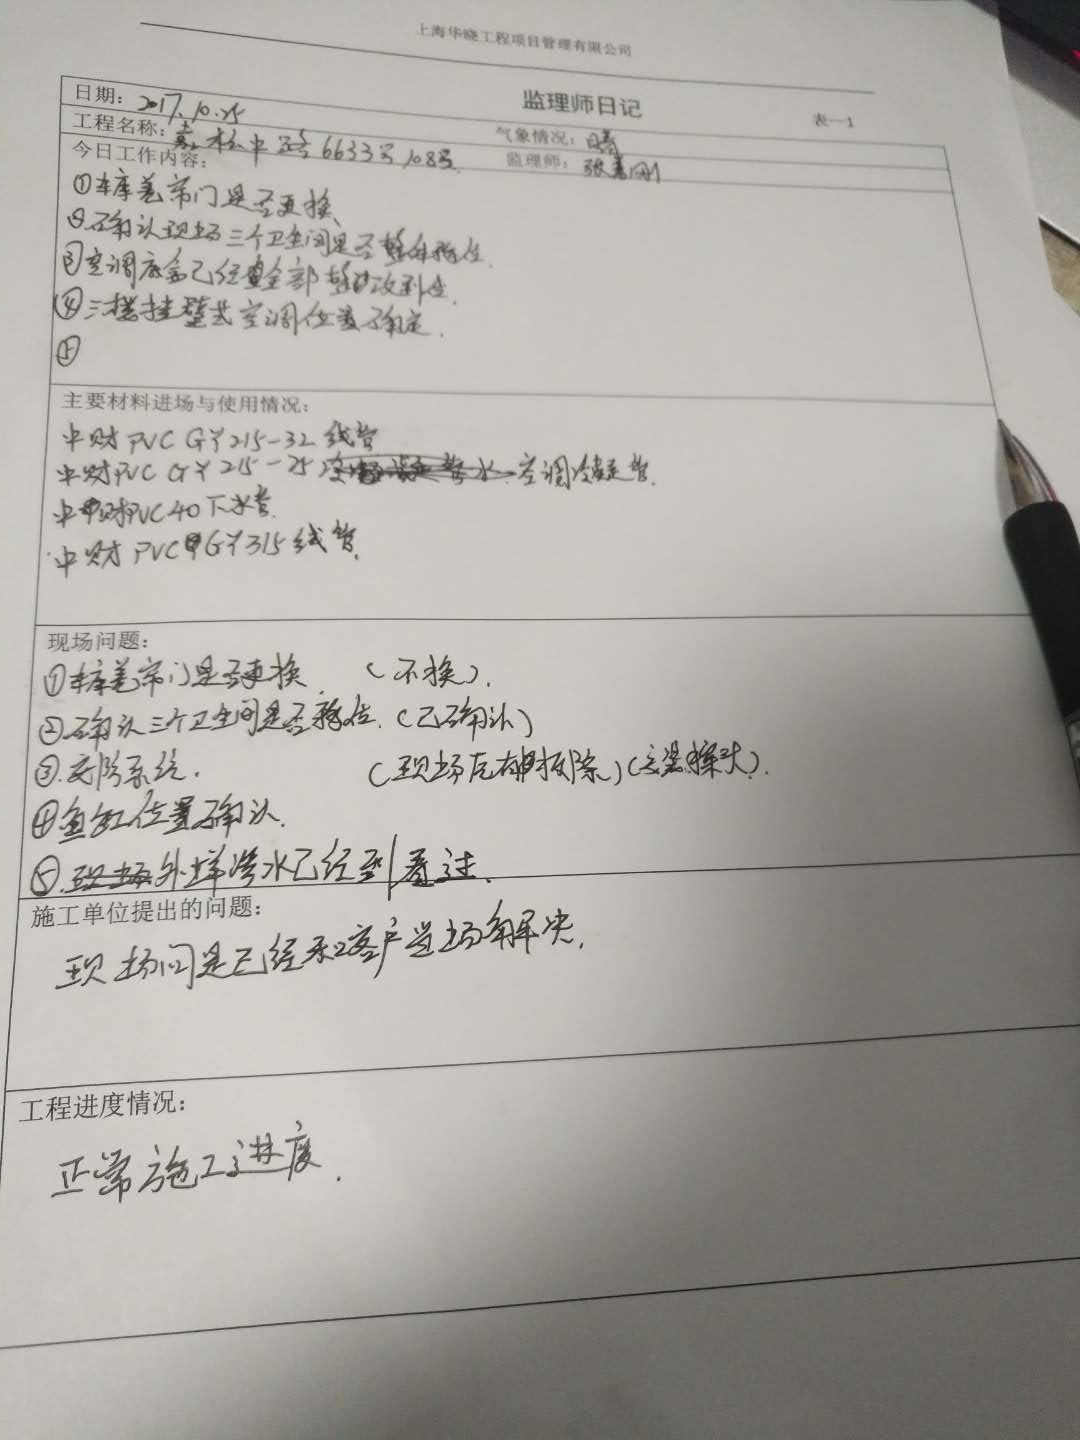 上海华晓工程项目管理有限公司
监理师日记
表一1
日期：2017.10.25
气象情况：晴
工程名称：嘉松中路6633号108号
监理师：张
今日工作内容：
①车库卷帘门是否更换、
②.确认现场三个卫生间是否整体移位.
③空调底盒已经全部整改到位.
④三楼挂壁式空调位置确定.
⑤
主要材料进场与使用情况：
中财PVC GY215-32线管
中财PVC GY215-25 空调冷凝管.
中财PVC40下水管.
中财PVC GY315线管.
现场问题：
①车库卷帘门是否更换 （不换）.
②确认三个卫生间是否移位.（已确认）
③.安防系统. （现场左右拆除）（安装探头）.
④鱼缸位置确认.
⑤.外墙渗水已经到看过.
施工单位提出的问题：
现场问是已经和客户当场解决.
工程进度情况：
正常施工进度.